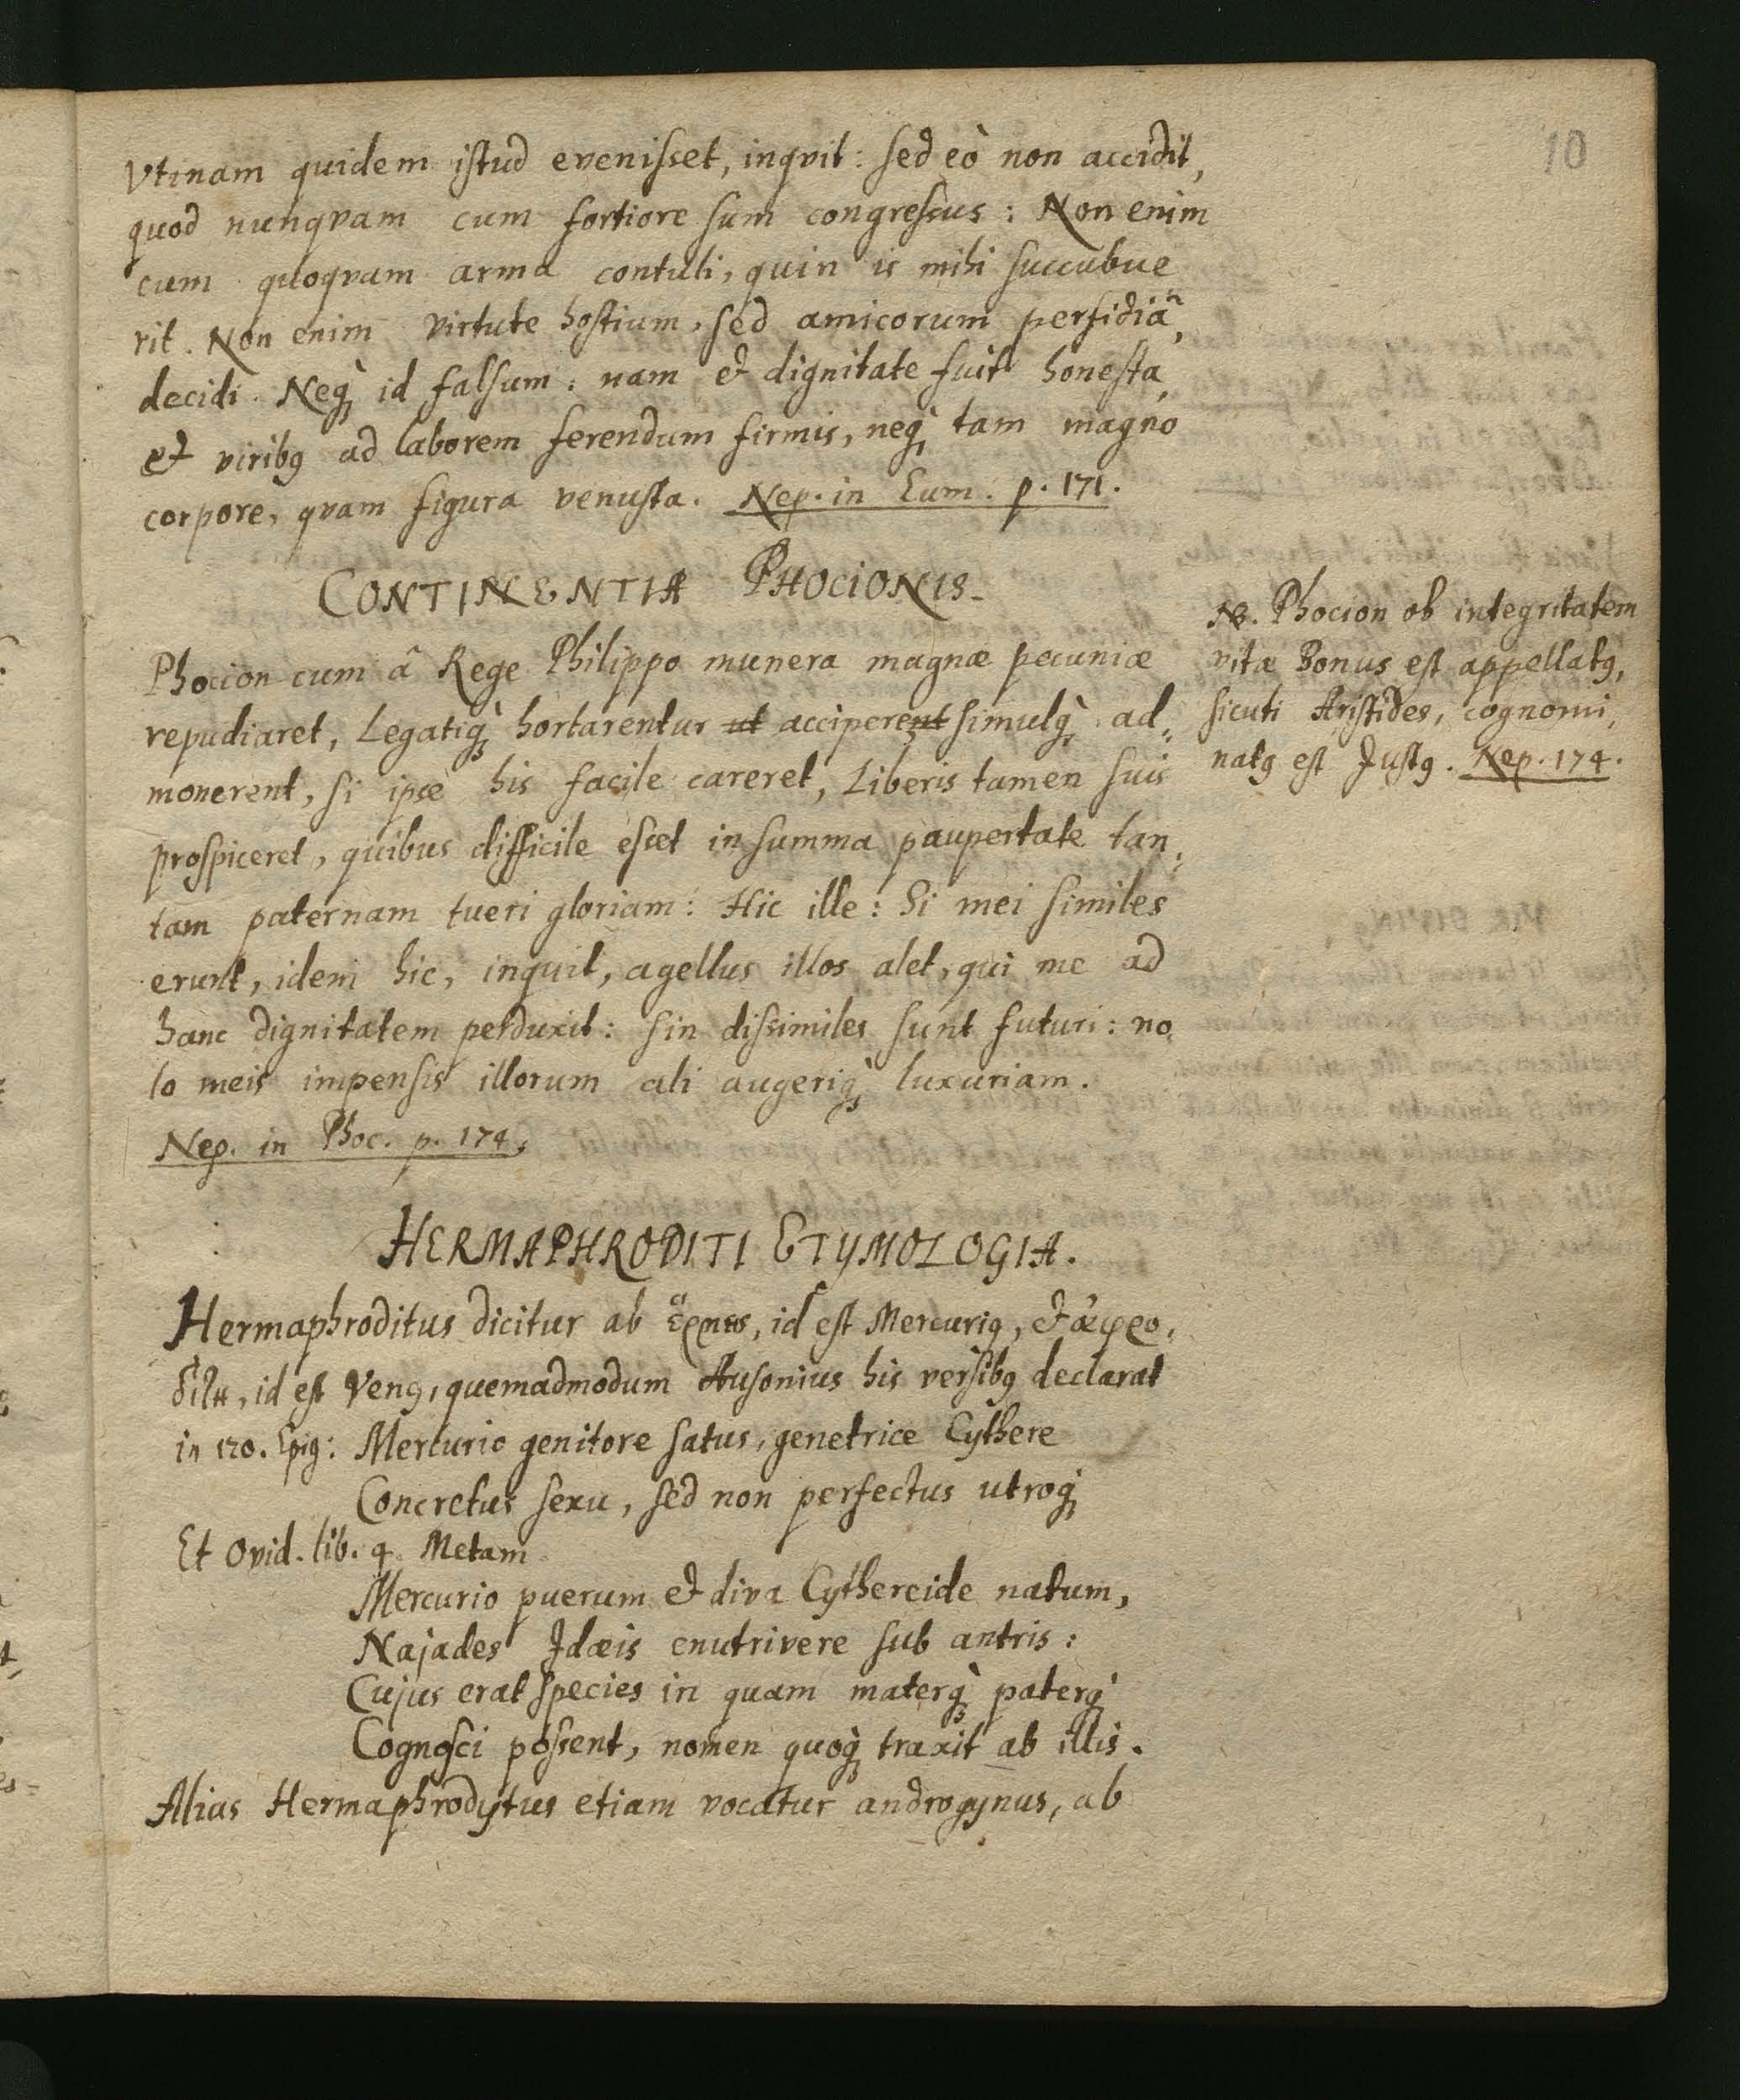 10
Vtinam quidem iſtud eveniſset, inqvit: ſed eò non accidit,
quod nunqvam cum fortiore ſum congreſsus: Non enim
cum quoqvam arma contuli, quin is mihi ſuccubue
rit. Non enim virtute hoſtium, ſed amicorum perfidiâ,
decidi. Neq́ꝫ id falſum: nam et dignitate fuit honeſta,
et viribꝯ ad laborem ferendum firmis, neq́ꝫ tam magno
corpore, qvam figura venuſta. Nep. in Eum. p. 171.
CONTINENTIA PHOCIONIS.
Phocion cum â Rege Philippo munera magnæ pecuniæ
repudiaret, Legatiq̀ꝫ hortarentur ut acciperent ſimulq̀ꝫ ad⸗
monerent, ſi ipse his facile careret, Liberis tamen ſuis
proſpiceret, quibus difficile eſset in ſumma paupertate tan⸗
tam paternam tueri gloriam: Hic ille: Si mei ſimiles
erunt, idem hic, inquit, agellus illos alet, qui me ad
hanc dignitatem perduxit: ſin diſsimiles ſunt futuri: no
lo meis impenſis illorum ali augeriq̀ꝫ luxuriam.
Nep. in Phoc. p. 174.
NB. Phocion ob integritatem
vitæ Bonus eſt appellatꝯ,
ſicuti Ariſtides, cognomi⸗
natꝯ eſt Juſtꝯ. Nep. 174.
HERMAPHRODITI ETYMOLOGIA.
Hermaphroditus dicitur ab ἕρμης, id eſt Mercuriꝯ, et ἀφρο⸗
δίτη, id eſt Venꝯ, quemadmodum Auſonius his verſibꝯ declarat
in 120. Epig: Mercurio genitore ſatus, genetrice Cythere
Concretus ſexu, ſed non perfectus utroq́ꝫ
Et Ovid. lib. 4. Metam
Mercurio puerum et diva Cythereide natum,
Najades Idæis enutrivere ſub antris:
Cujus erat ſpecies in quam materq̀ꝫ paterq̀ꝫ
Cognoſci poſsent, nomen quoq̀ꝫ traxit ab illis.
Alias Hermaphrodÿtus etiam vocatur androgynus, ab